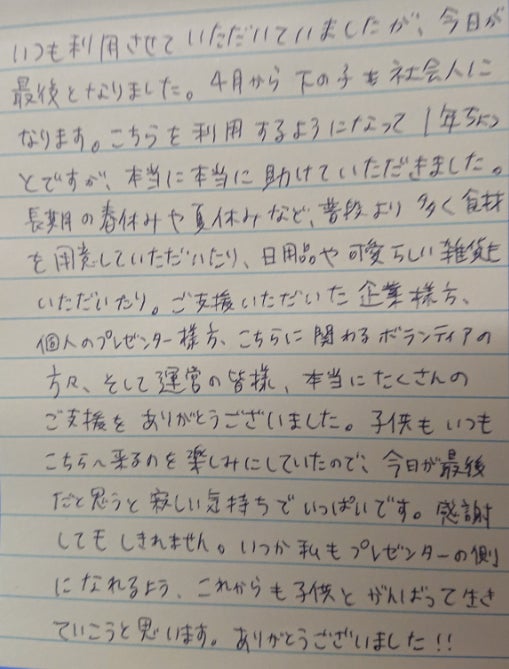 いつも利用させていただいていましたが、今日が
最後となりました。4月から下の子も社会人に
なります。こちらを利用するようになって1年ちょっ
とですが、本当に本当に助けていただきました。
長期の春休みや夏休みなど、普段より多く食材
を用意していただいたり、日用品や可愛らしい雑貨も
いただいたり。ご支援いただいた企業様方、
個人のプレゼンター様方、こちらに関わるボランティアの
方々、そして運営の皆様、本当にたくさんの
ご支援をありがとうございました。子供もいつも
こちらへ来るのを楽しみにしていたので、今日が最後
だと思うと寂しい気持ちでいっぱいです。感謝
してもしきれません。いつか私もプレゼンターの側
になれるよう、これからも子供とがんばって生き
ていこうと思います。ありがとうございました!!